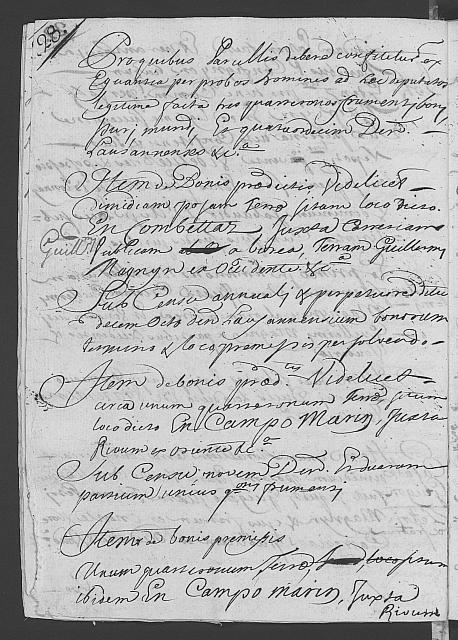 28.
Pro quibus Parcellis debere confitetur ex
Equantia per probos homines ad hoc deputatos
legitime facta tres quarteronos frumenti boni
puri mundi, Et quatuordecim Den.
Lausannenses &c.a
Item de Bonis prædictis Videlicet
dimidiam posam terræ sitam loco dicto
En Combettaz, Juxta Carreriam
Publicam a borea, terram Guillermi
Guill.
Magnyn ex Occidente &c.a
Sub Censu annuali & perpetuo reddituali
decem Octo den. Lausannensium bonorum
termino & loco premissis persolvendo
Item de bonis præd.tis Videlicet
circa unum quarteronum terræ situm
loco dicto En Campo Marin, Juxta
Rivum ex oriente &c.a
Sub Censu novem Den. Et duarum
partium unius q.oni frumenti
Item de bonis premissis
Unum quarteronum terræ, loco situm
ibidem En Campo marin, Juxta
Rivum